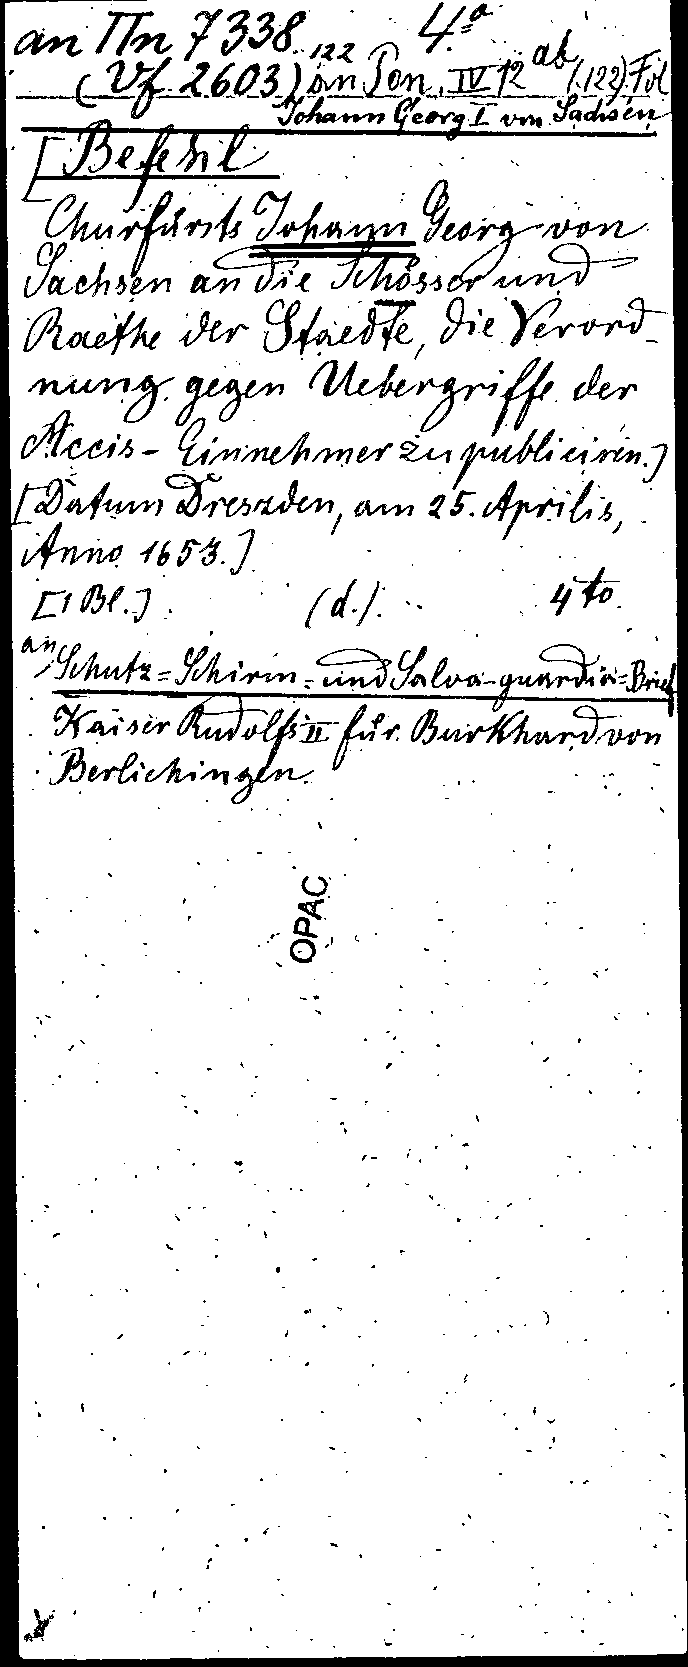 an IIn 7338 122 4.º
(Vf 2603) an Pon. IV 12 ab (122) Fol
Johann Georg I von Sachsen
[Befehl
Churfürsts Johann Georg von
Sachsen an die Schösser und
Raethe der Staedte, die Verord-
nung gegen Uebergriffe der
Accis-Einnehmer zu publiciren.]
[Datum Dreszden, am 25. Aprilis,
Anno 1653.]
[1 Bl.] (d.) 4to.
an Schutz=Schirm=und Salva-guardia=Brief
Kaiser Rudolfs II für Burkhard von
Berlichingen.
OPAC